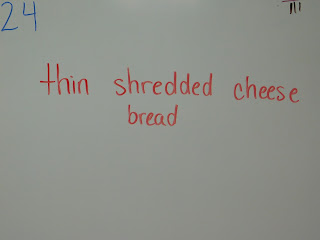 24
thin shredded cheese
bread